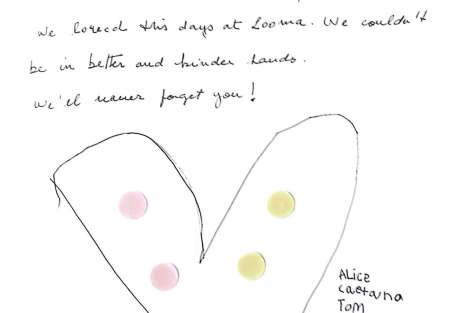 We loved this days at Looma. We couldn't
be in better and kinder hands.
We'll never forget you!
ALICE
caetana
TOM